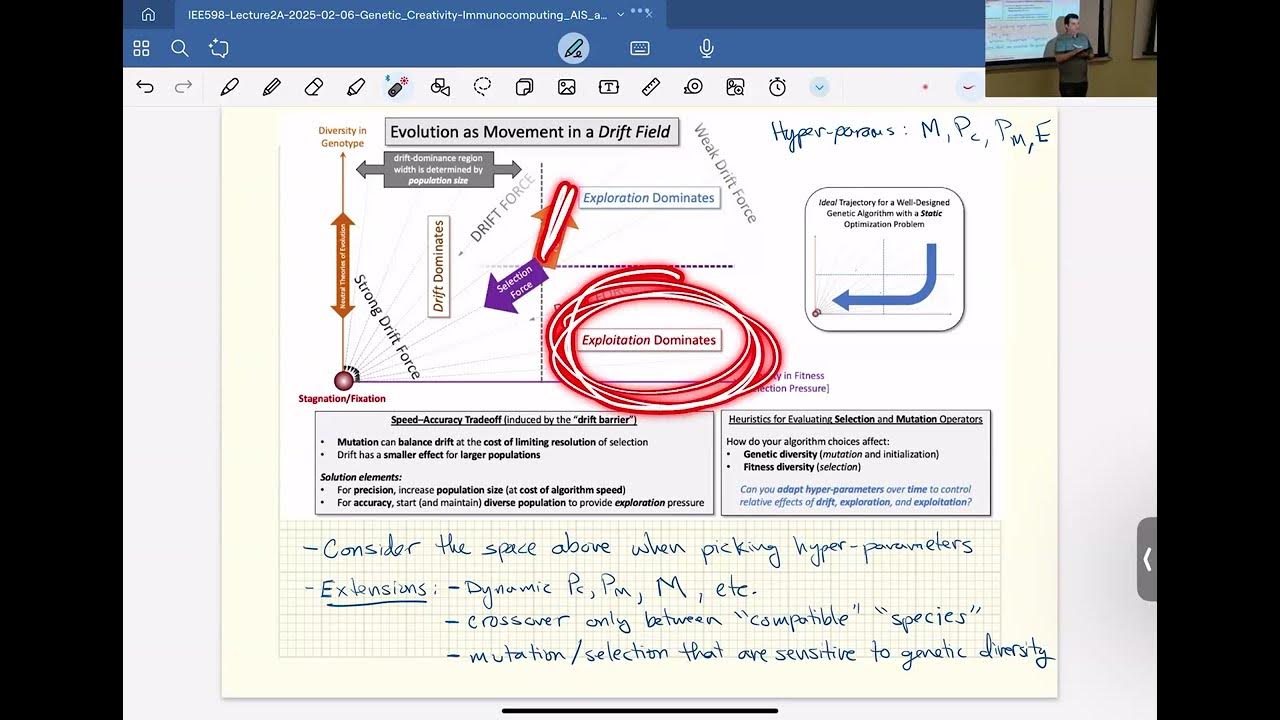 IEE598-Lecture2A-2025-02-06-Genetic_Creativity-Immunocomputing_AIS_a...
Hyper-params: M, Pc, PM, E
Diversity in
Genotype
Evolution as Movement in a Drift Field
drift-dominance region
width is determined by
population size
Weak Drift Force
DRIFT FORCE
Exploration Dominates
Ideal Trajectory for a Well-Designed
Genetic Algorithm with a Static
Optimization Problem
Neutral Theories of Evolution
Drift Dominates
Selection
Force
Strong Drift Force
Exploitation Dominates
in Fitness
Pressure]
Stagnation/Fixation
Speed–Accuracy Tradeoff (induced by the "drift barrier")
• Mutation can balance drift at the cost of limiting resolution of selection
• Drift has a smaller effect for larger populations
Solution elements:
• For precision, increase population size (at cost of algorithm speed)
• For accuracy, start (and maintain) diverse population to provide exploration pressure
Heuristics for Evaluating Selection and Mutation Operators
How do your algorithm choices affect:
• Genetic diversity (mutation and initialization)
• Fitness diversity (selection)
Can you adapt hyper-parameters over time to control
relative effects of drift, exploration, and exploitation?
- Consider the space above when picking hyper-parameters
- Extensions: - Dynamic Pc, PM, M, etc.
- crossover only between "compatible" "species"
- mutation/selection that are sensitive to genetic diversity